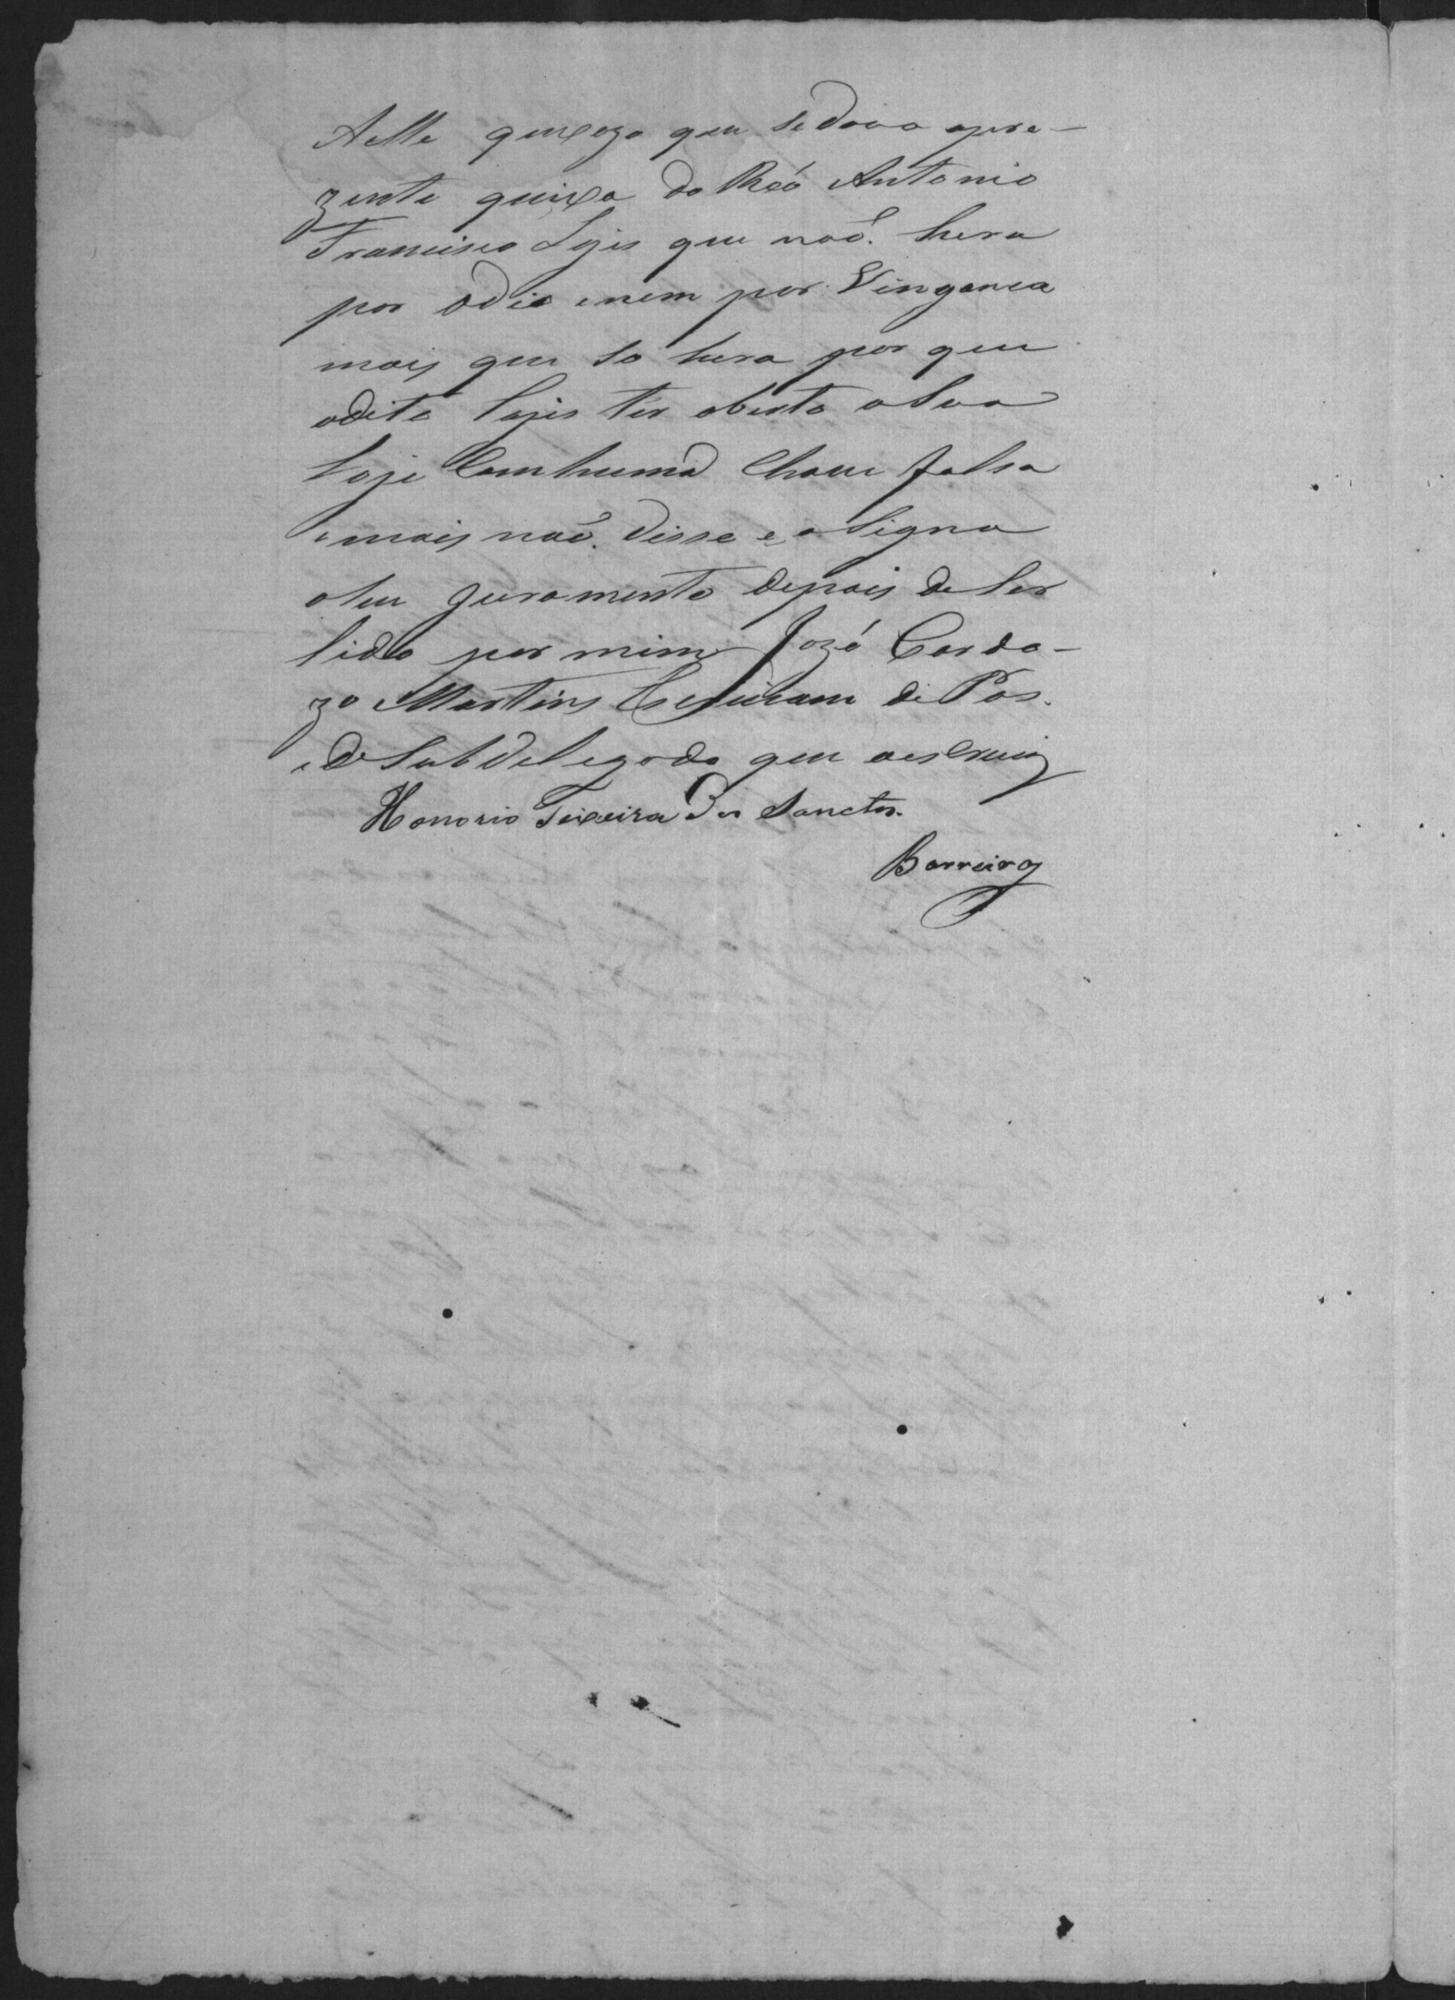 Aelle queixozo que sedava apre-
zente queixa do Reó Antonio
Francisco Lajes que naõ. hera
por odio enem por Vingança
mais que so hera por que
odito Lajes ter aberto a Sua
Loje Com huma Chave falsa
emais naõ. disse e aSigna
oSeu Juramento depois de Ser
lido por mim Jozé Cardo-
zo Martins Escrivam de Pas.
e de Subdelegado que oescrevi
Honorio Teixeira Dos Sanctos.
Barreiros